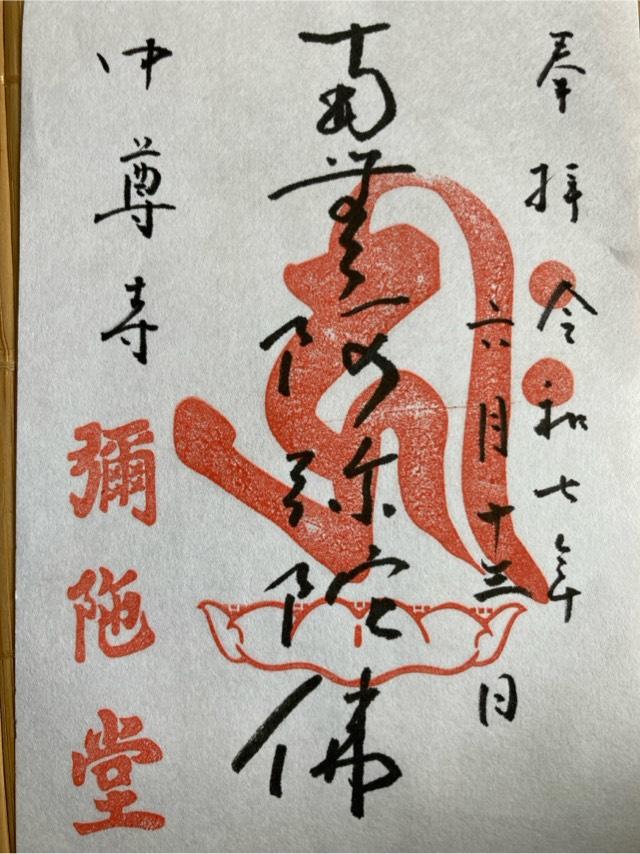 奉拝 令和七年
六月十三日
南無阿弥陀佛
中尊寺
彌陀堂